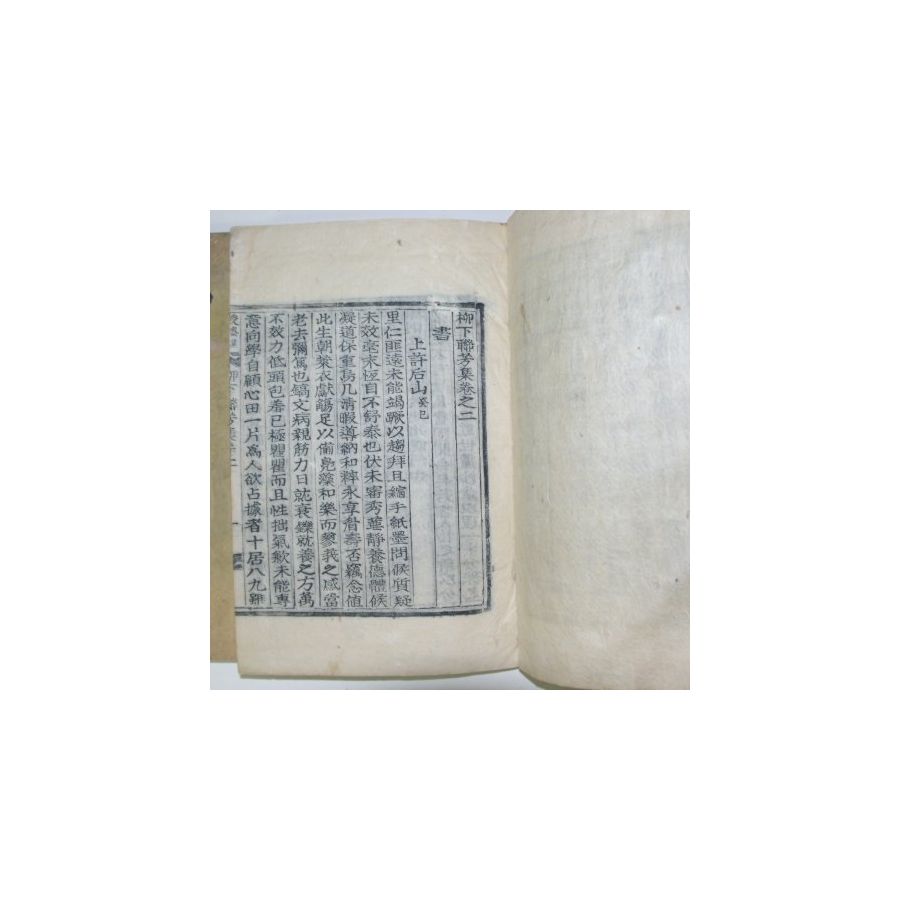 柳下聯芳集卷之二
書
上許后山 癸巳
里仁匪遠未能竭蹶以趨拜且縮手紙墨問候質疑
未效毫末恆自不舒泰也伏未審秀華靜養德體候
凝道保重烏几清暇導納和粹永享脅壽否竊念値
此生朝萊衣獻觴足以備堯藻和樂而蓼莪之感當
老去彌篤也鎬文病親筋力日就衰鑠就養之方萬
不效力低頭包羞已極瞿瞿而且性拙氣歉未能專
意向學自顧心田一片爲人欲占據者十居八九雖